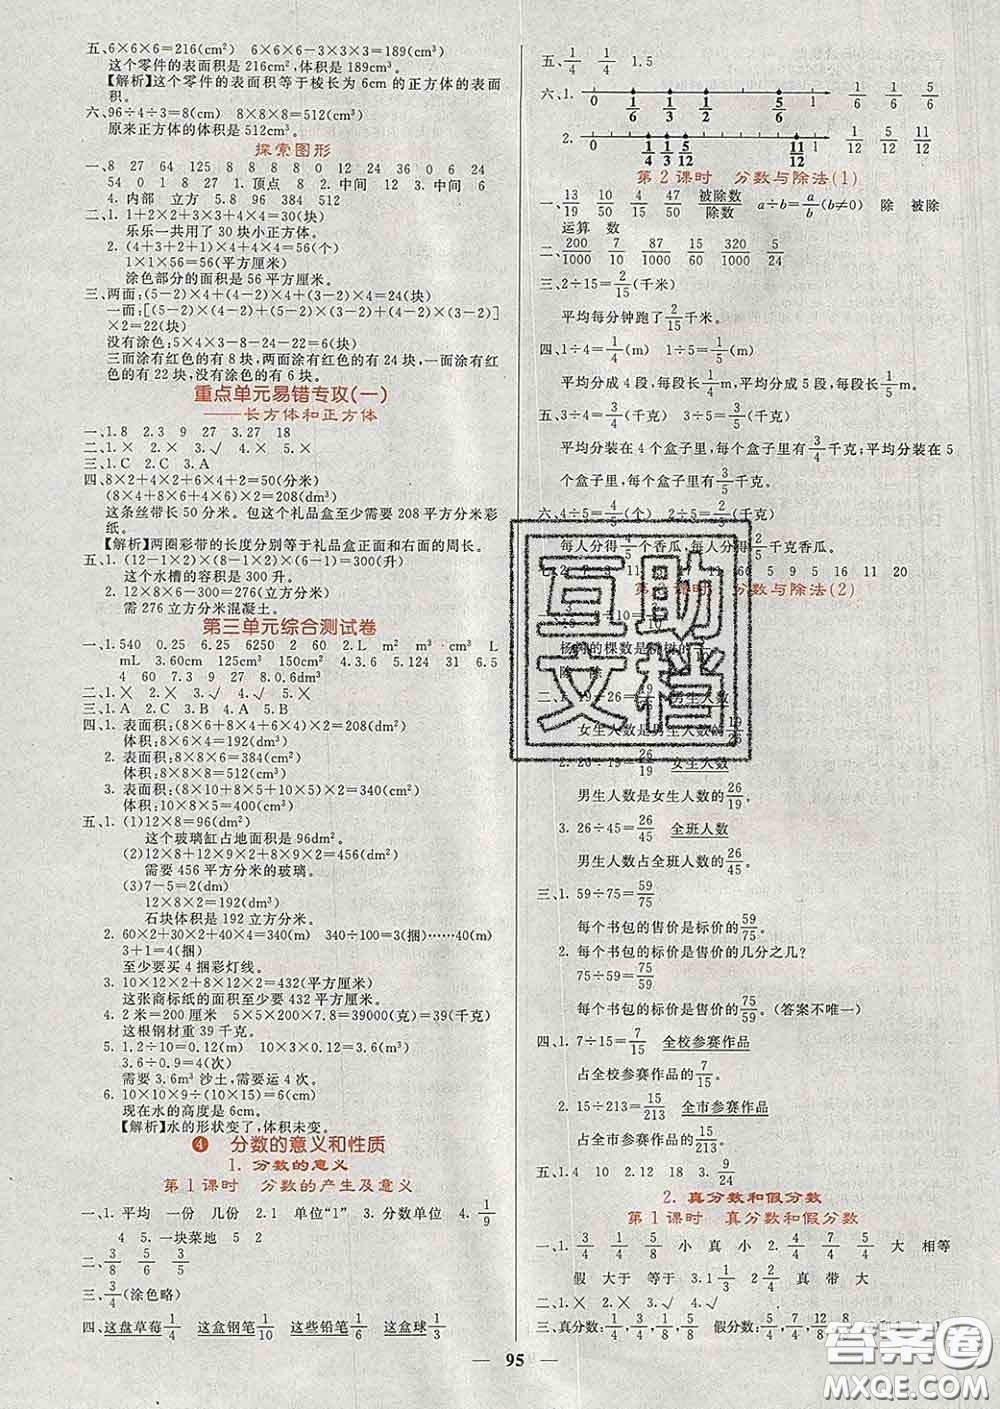 五、6×6×6=216(cm²)　6×6×6-3×3×3=189(cm³)
这个零件的表面积是216cm²,体积是189cm³。
【解析】这个零件的表面积等于棱长为6cm的正方体的表面
积。
六、96÷4÷3=8(cm)　8×8×8=512(cm³)
原来正方体的体积是512cm³。
探索图形
一、8　27　64　125　8　8　8　8　0　12　24　36　0　6　24
54　0　1　8　27　1. 顶点　8　2. 中间　12　3. 中间　6
4. 内部　立方　5. 8　96　384　512
二、1. 1+2+2+3+3+4+4+4=30(块)
乐乐一共用了30块小正方体。
2. (4+3+2+1)×4+4×4=56(个)
1×1×56=56(平方厘米)
涂色部分的面积是56平方厘米。
三、两面:(5-2)×4+(4-2)×4+(3-2)×4=24(块)
一面:[(5-2)×(4-2)+(5-2)×(3-2)+(4-2)×(3-2)]
×2=22(块)
没有涂色:5×4×3-8-24-22=6(块)
三面涂有红色的有8块,两面涂有红色的有24块,一面涂有红
色的有22块,没有涂色的有6块。
重点单元易错专攻(一)
——长方体和正方体
一、1. 8　2. 3　9　27　3. 27　18
二、1. ×　2. ×　3. √　4. ×　5. ×
三、1. C　2. C　3. A
四、8×2+4×2+6×4+2=50(分米)
(8×4+8×6+4×6)×2=208(dm²)
这条丝带长50分米。包这个礼品盒至少需要208平方分米彩
纸。
【解析】两圈彩带的长度分别等于礼品盒正面和右面的周长。
五、1. (12-1×2)×(8-1×2)×(6-1)=300(升)
这个水槽的容积是300升。
2. 12×8×6-300=276(立方分米)
需276立方分米混凝土。
第三单元综合测试卷
一、1. 540　0.25　6.25　6250　2　60　2. L　m²　m³　cm³　L
mL　3. 60cm　125cm³　150cm²　4. 3.6　5. 124　31　6. 5
4　60　7. 9　27　8. 0.6m³
二、1. ×　2. √　3. ×　4. ×　5. √
三、1. A　2. C　3. D　4. A　5. B
四、1. 表面积:(8×6+8×4+6×4)×2=208(dm²)
体积:8×6×4=192(dm³)
2. 表面积:8×8×6=384(dm²)
体积:8×8×8=512(dm³)
3. 表面积:(10×8+8×5+10×5)×2=340(cm²)
体积:10×8×5=400(cm³)
五、1. (1)12×8=96(dm²)
这个玻璃缸占地面积是96dm²。
(2)12×8+12×9×2+8×9×2=456(dm²)
需要456平方分米的玻璃。
(3)7-5=2(dm)　
石块体积是192立方分米。
2. 60×2+30×2+40×4=340(m)　340÷100=3(捆)……40(m)
3+1=4(捆)
至少要买4捆彩灯线。
3. 10×12×2+8×12×2=432(平方厘米)
这张商标纸的面积至少要432平方厘米。
4. 2米=200厘米　5×5×200×7.8=39000(克)=39(千克)
这根钢材重39千克。
5. 1.2÷10=0.12(m)　10×3×0.12=3.6(m³)
3.6÷0.9=4(次)
需要3.6m³沙土,需要运4次。
6. 10×10×9÷(15×10)=6(cm)
现在水的高度是6cm。
【解析】水的形状变了,体积未变。
4　分数的意义和性质
1. 分数的意义
第1课时　分数的产生及意义
一、1. 平均　一份　几份　2. 1　单位“1”　3. 分数单位　4. 1/9
4　5. 一块菜地　5　2
二、3/8　5/6　3/5
三、3/4(涂色略)
四、这盘草莓1/4　这盒钢笔1/10　这些铅笔1/6　这盒球1/3
五、1/4　1/4　1.5
六、1. 0　1/6　1/3　1/2　5/6　1　1/3　1/2　5/6
2. 0　1/4　1/3　5/12　11/12　1　1/12　5/12　11/12
第2课时　分数与除法(1)
一、13/19　10/50　4/15　47/50　被除数/除数　a÷b=a/b(b≠0)　除　被除
运算　数
二、200/1000　7/10　87/1000　15/60　320/1000　5/24
三、2÷15=2/15(千米)
平均每分钟跑了2/15千米。
四、1÷4=1/4(m)　1÷5=1/5(m)
平均分成4段,每段长1/4m;平均分成5段,每段长1/5m。
五、3÷4=3/4(千克)　3÷5=3/5(千克)
平均分装在4个盒子里,每个盒子里有3/4千克;平均分装在5
个盒子里,每个盒子里有3/5千克。
六、4÷5=4/5(个)　2÷5=2/5(千克)
每人分得4/5个香瓜,每人分得2/5千克香瓜。
5　9　5　16　11　20
分数与除法(2)
二、1. 19÷26=19/26　男生人数
女生人数是男生人数的19/26
2. 26÷19=26/19　女生人数
男生人数是女生人数的26/19。
3. 26÷45=26/45　全班人数
男生人数占全班人数的26/45。
三、1. 59÷75=59/75
每个书包的售价是标价的59/75。
2. 每个书包的标价是售价的几分之几?
75÷59=75/59
每个书包的标价是售价的75/59。(答案不唯一)
四、1. 7÷15=7/15　全校参赛作品
占全校参赛作品的7/15。
2. 15÷213=15/213　全市参赛作品
占全市参赛作品的15/213。
五、1. 4　10　2. 12　18　3. 9/24
2. 真分数和假分数
第1课时　真分数和假分数
一、1. 3/4　1/4　5/8　小　真　小　2. 4/4　7/4　5/4　大　相等
假　大于　等于　3. 1 1/3　2 2/4　真　带　大
二、1. ×　2. ×　3. √　4. √
95
互助
文档
答案圈
MXQE.COM